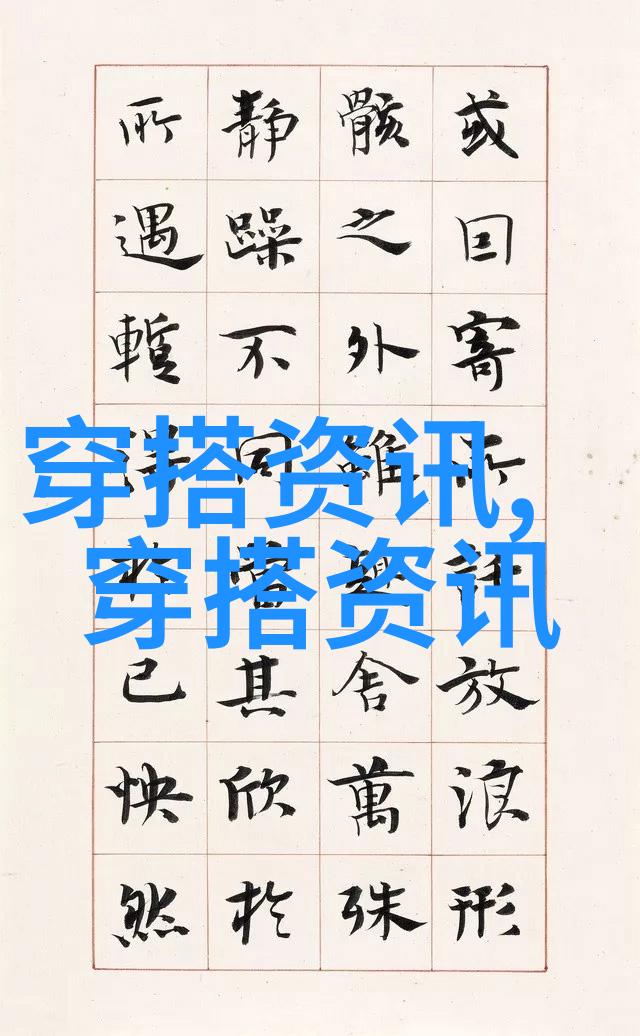 或囙寄所託放浪形
骸之外雖趣舍萬殊
靜躁不同當其欣於
所遇暫得於己怏然
穿搭资讯,
穿搭资讯